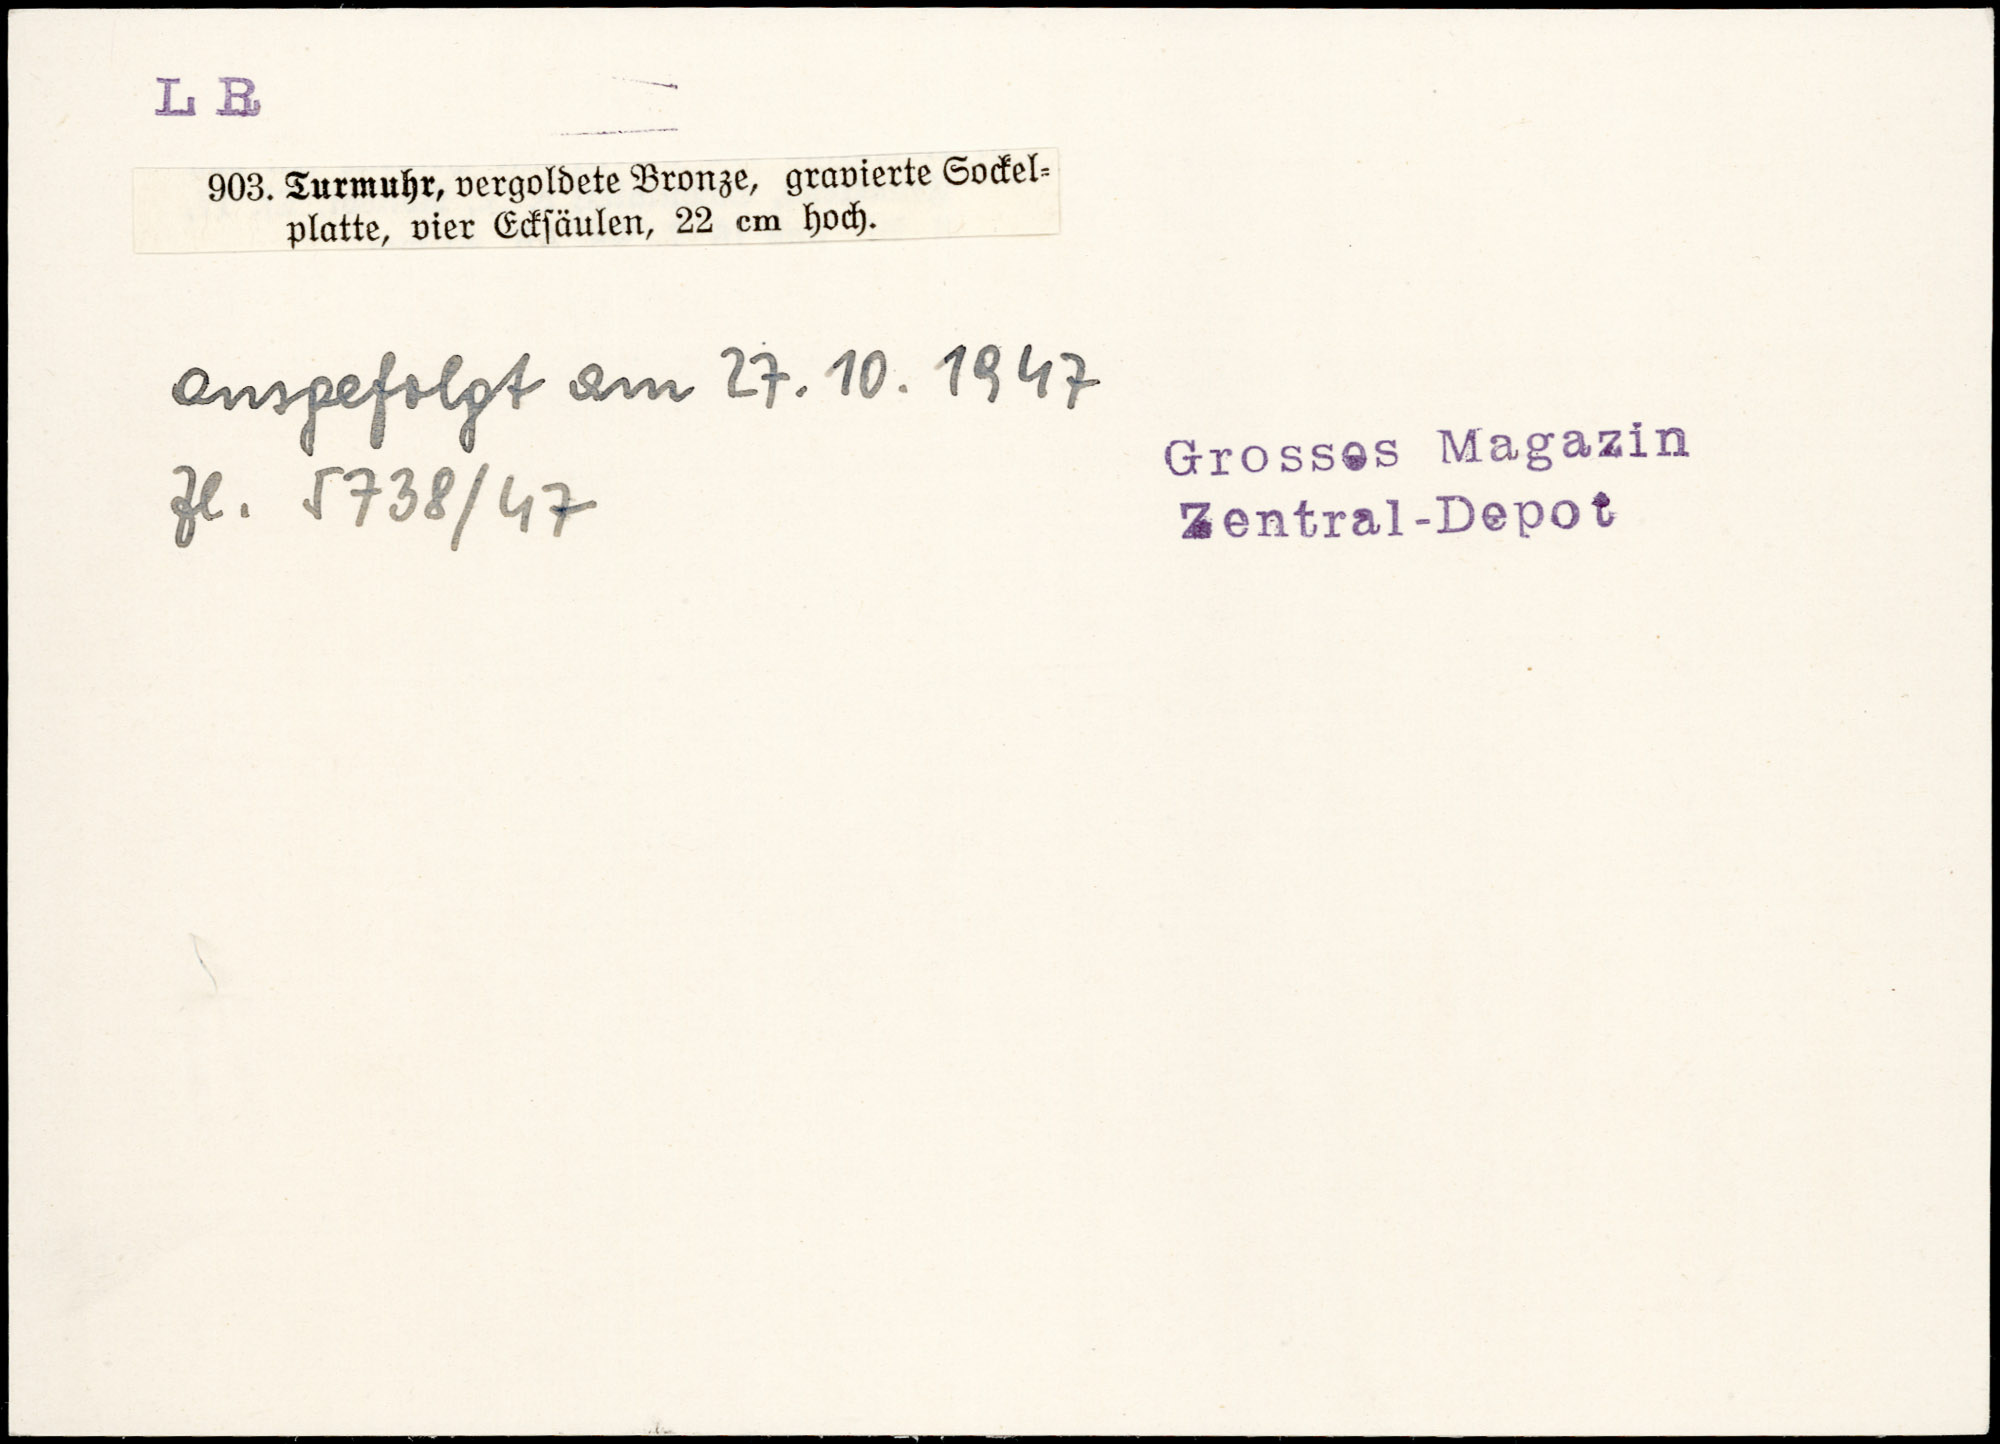 L R
903. Turmuhr, vergoldete Bronze, gravierte Sockel-
platte, vier Ecksäulen, 22 cm hoch.
ausgefolgt am 27. 10. 1947
Zl. 5738/47
Grosses Magazin
Zentral-Depot